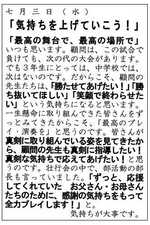 七月三日（水）
「気持ちを上げていこう！」
「最高の舞台で、最高の場所で」
いつも思います。顧問は、この試合で
負けても、次の代の大会があります。
でも３年生にとっては、中学校では、
次はないのです。だからこそ、顧問の
先生たちは、「勝たせてあげたい！」「勝
ち抜いてほしい」「笑顔で終わらせた
い」という気持ちになると思います。
一生懸命に取り組んできた皆さんをず
っとみてきたからこそ、「最高のプレ
イ・演奏を」と思うのです。皆さんが
真剣に取り組んでいる姿を見てきたか
ら、顧問の先生も真剣に指導したい！
真剣な気持ちで応えてあげたい！と思
うはずです。壮行会の中で、部活動の部
長も言っていました。「ずっと、応援
してくれていた　お父さん・お母さん
たちのために、感謝の気持ちをもって
全力プレイします！」と。
気持ちが大事です。